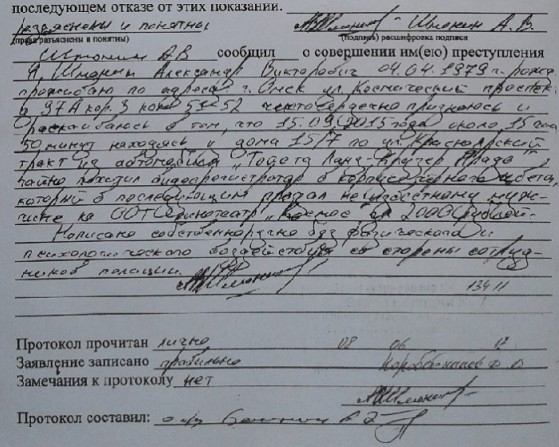 последующем отказе от этих показаний.
разъяснены и понятны Штокин А. В.
(права разъяснены и понятны) (подпись) расшифровка подписи
Штокин А В сообщил о совершении им(ею) преступления
Я, Штокин Александр Викторович 04.04.1979 г. рожд
проживаю по адресу г. Омск ул Космический проспек
97А кор. 3 ком 51-52 чистосердечно признаюсь и
раскаиваюсь в том, что 15.09.2015 года около 15 час
50 минут находясь у дома 15/7 по ул. Красноярский
тракт из автомобиля "Тойота Ланд Крузер Прадо"
тайно похитил видеорегистратор в корпусе черного цвета,
который в последующим продал неизвестному муж-
чине на ООТ Кинотеатр "Космос" за 2000 рублей.
Написано собственноручно без физического и
психологического воздействия со стороны сотруд-
ников полиции.
Протокол прочитан лично 08 06
Заявление записано правильно
Замечания к протоколу нет
Протокол составил: о/у